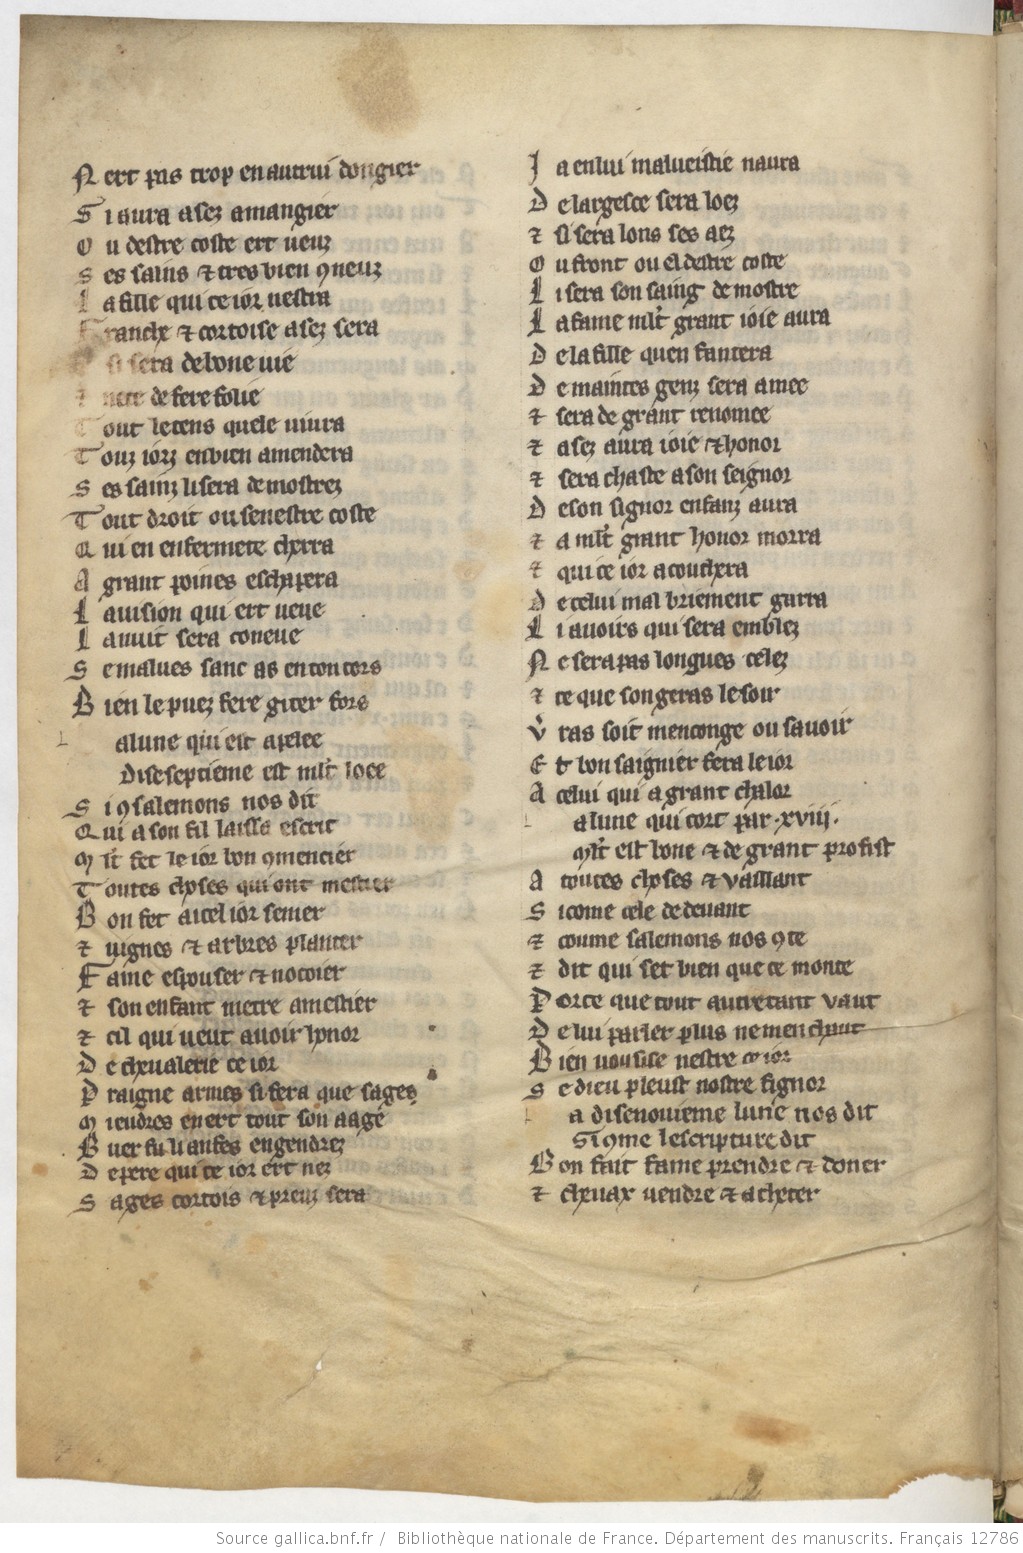 N ert pas trop en autrui dongier
S i aura asez a mangier
O u destre coste ert ueuz
S es sains ⁊ tres bien ꝯneuz
L a fille qui ce ior nestra
F ranche ⁊ cortoise asez sera
si sera de bone uie
de fere folie
T out le tens quele uiura
T ouz iorz en bien amendera
S es sainz li sera demostrez
T out droit ou senestre coste
Q ui en enfermete cherra
A grant poines eschapera
L auision qui ert ueue
L anuit sera coneue
S e malues sanc as en ton cors
B ien le puez fere giter fors
a lune qui est apelee
Diseseptieme est ml't loee
S i ꝯ salemons nos dit
Q ui a son fil laissa escrit
M l't fet le ior bon ꝯmencier
T outes choses qui ont mestier
B on fet a icel ior semer
⁊ uignes ⁊ arbres planter
F ame espouser ⁊ nocoier
⁊ son enfant metre a mestier
⁊ cil qui ueut auoir honor
D e cheualerie ce ior
P raigne armes si fera que sages
M ieudres en ert tout son aage
B uer fu li anfes engendrez
D e pere qui ce ior ert nez
S ages cortois ⁊ preuz sera
J a en lui malueistie naura
D e largesce sera loez
⁊ si sera lons ses aez
O u front ou el destre coste
L i sera son saing demostre
L a fame ml't grant ioie aura
D e la fille quen fantera
D e maintes genz sera amee
⁊ sera de grant renomee
⁊ asez aura ioie ⁊ honor
⁊ sera chaste a son seignor
D e son signor enfanz aura
⁊ a ml't grant honor morra
⁊ qui ce ior acouchera
D e celui mal briement garra
L i auoirs qui sera emblez
N e sera pas longues celez
⁊ ce que songeras le soir
V ras soit menconge ou sauoir
E t bon saignier fera le ior
A celui qui a grant chalor
a lune qui cort par .xviii.
Ml't est bone ⁊ de grant profist
A toutes choses ⁊ vaillant
S i come cele de deuant
⁊ coume salemons nos ꝯte
⁊ dit qui set bien que ce monte
P or ce que tout autretant vaut
D e lui parler plus ne men chaut
B ien uousise nestre ce ior
S e dieu pleust nostre signor
a disenouieme lune nos dit
Si ꝯme lescripture dit
B on fait fame prendre ⁊ doner
⁊ cheuax uendre ⁊ acheter
Source gallica.bnf.fr / Bibliothèque nationale de France. Département des manuscrits. Français 12786